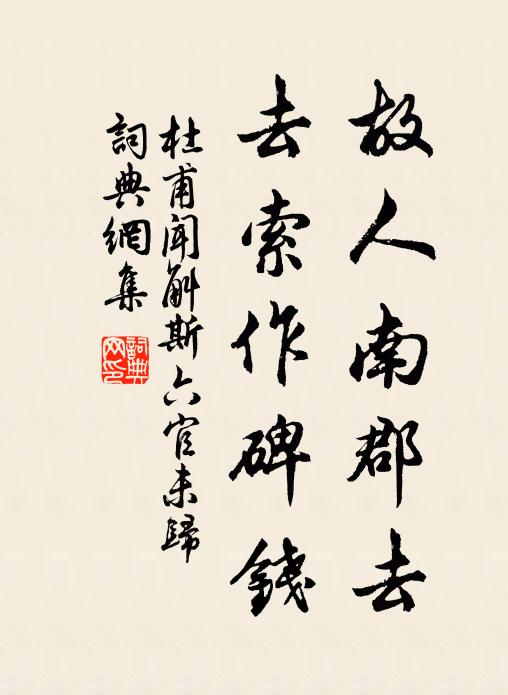 故人南郡去
去索作碑錢
杜甫聞斛斯六官未歸
詞典網集
詞典網印